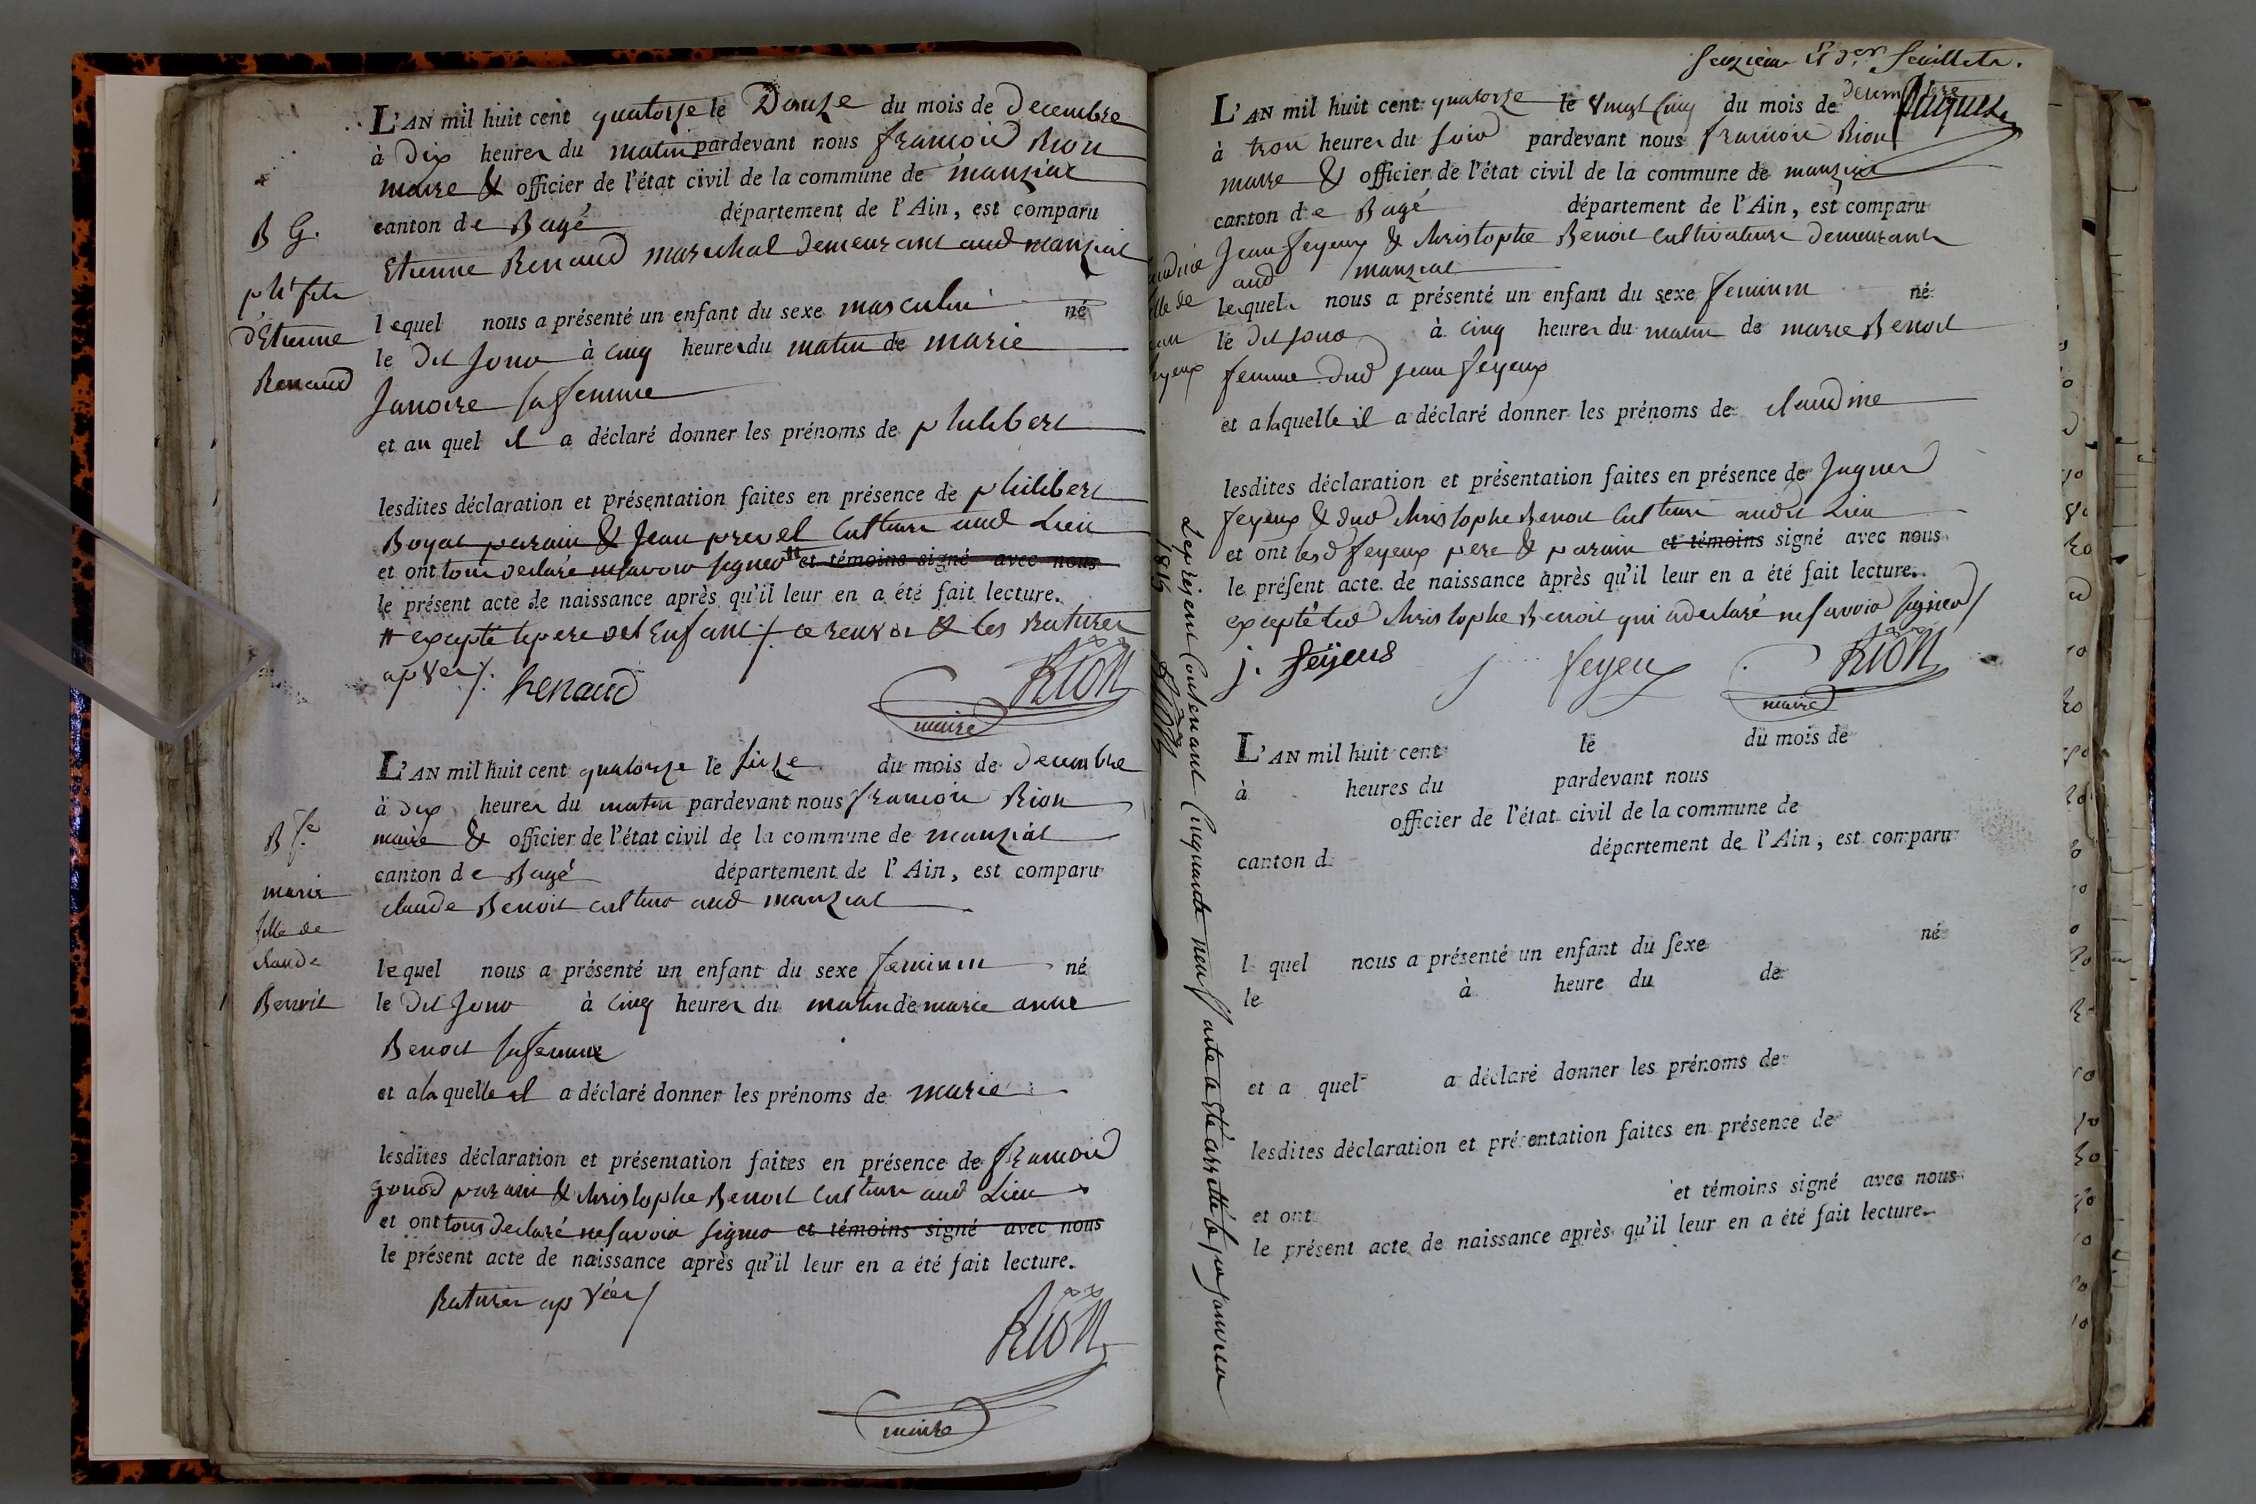 L'AN mil huit cent quatorze le Douze du mois de decembre
à Dix heures du matin pardevant nous francois Rion
maire & officier de l'état civil de la commune de manziat
canton de Bagé département de l'Ain, est comparu
Etienne Renaud marechal demeurant aud manziat
lequel nous a présenté un enfant du sexe masculin né
le dit Jour à cinq heures du matin de marie
Janoire sa femme
et au quel il a déclaré donner les prénoms de philibert
lesdites déclaration et présentation faites en présence de philibert
Boyat parain & Jean prevel Culteurs aud Lieu
et ont tous declaré ne savoir signer et témoins signé avec nous
le présent acte de naissance après qu'il leur en a été fait lecture.
# excepté le pere de l'Enfant /. ce renvoi & les Ratures
apvées /.
Renaud
RION
maire
B G.
phi^t fils
d'Etienne
Renaud
L'AN mil huit cent quatorze le seize du mois de decembre
à dix heures du matin pardevant nous francois Rion
maire & officier de l'état civil de la commune de manziat
canton de Bagé département de l'Ain, est comparu
claude Benoit culteur aud manziat
lequel nous a présenté un enfant du sexe feminin né
le dit Jour à cinq heures du matin de marie anne
Benoit sa femme
et a la quelle il a déclaré donner les prénoms de marie
lesdites déclaration et présentation faites en présence de francois
gonod parain & christophe Benoit culteurs aud Lieu
et ont tous declaré ne savoir signer et témoins signé avec nous
le présent acte de naissance après qu'il leur en a été fait lecture.
Ratures apvées /
RION
maire
B fe
marie
fille de
claude
Benoit
seizieme & d.er feuillets.
L'AN mil huit cent quatorze le vingt cinq du mois de decembre
à trois heures du soir pardevant nous francois Rion
maire & officier de l'état civil de la commune de manziat
canton de Bagé département de l'Ain, est comparu
Jean feyeux & christophe Benoit cultivateurs demeurants
aud manziat
lesquels nous a présenté un enfant du sexe feminin né
le dit jour à cinq heures du matin de marie Benoit
femme dud jean feyeux
et a laquelle il a déclaré donner les prénoms de claudine
lesdites déclaration et présentation faites en présence de Jaques
feyeux & dud christophe Benoit culteurs audit Lieu
et ont lesd feyeux pere & parain et témoins signé avec nous
le présent acte de naissance après qu'il leur en a été fait lecture.
excepté led christophe Benoit qui a declaré ne savoir signer /
j. feÿeus
j feyeux
RION
maire
Le present Contenant Cinquante neuf actes a été arretté le per janvier
1815 RION
L'AN mil huit cent le du mois de
à heures du pardevant nous
officier de l'état civil de la commune de
canton d département de l'Ain, est comparu
l quel nous a présenté un enfant du sexe né
le à heure du de
et a quel a déclaré donner les prénoms de
lesdites déclaration et présentation faites en présence de
et ont et témoins signé avec nous
le présent acte de naissance après qu'il leur en a été fait lecture.